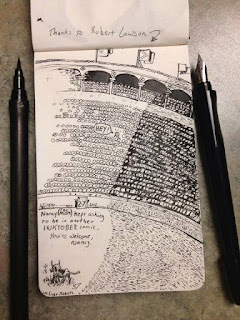 Thanks to Robert Lawson
HEY!
Nancy kept asking
to be in another
INKTOBER comic.
You're welcome,
Nancy.